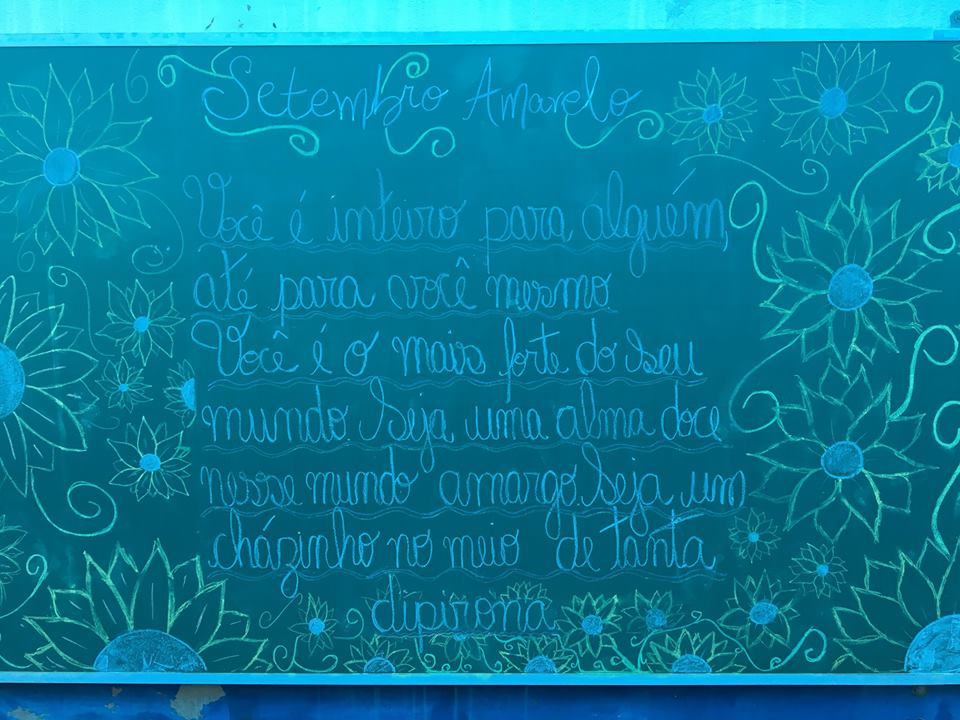 Setembro Amarelo
Você é inteiro para alguém,
até para você mesmo
Você é o mais forte do seu
mundo. Seja uma alma doce
nesse mundo amargo. Seja um
cházinho no meio de tanta
dipirona